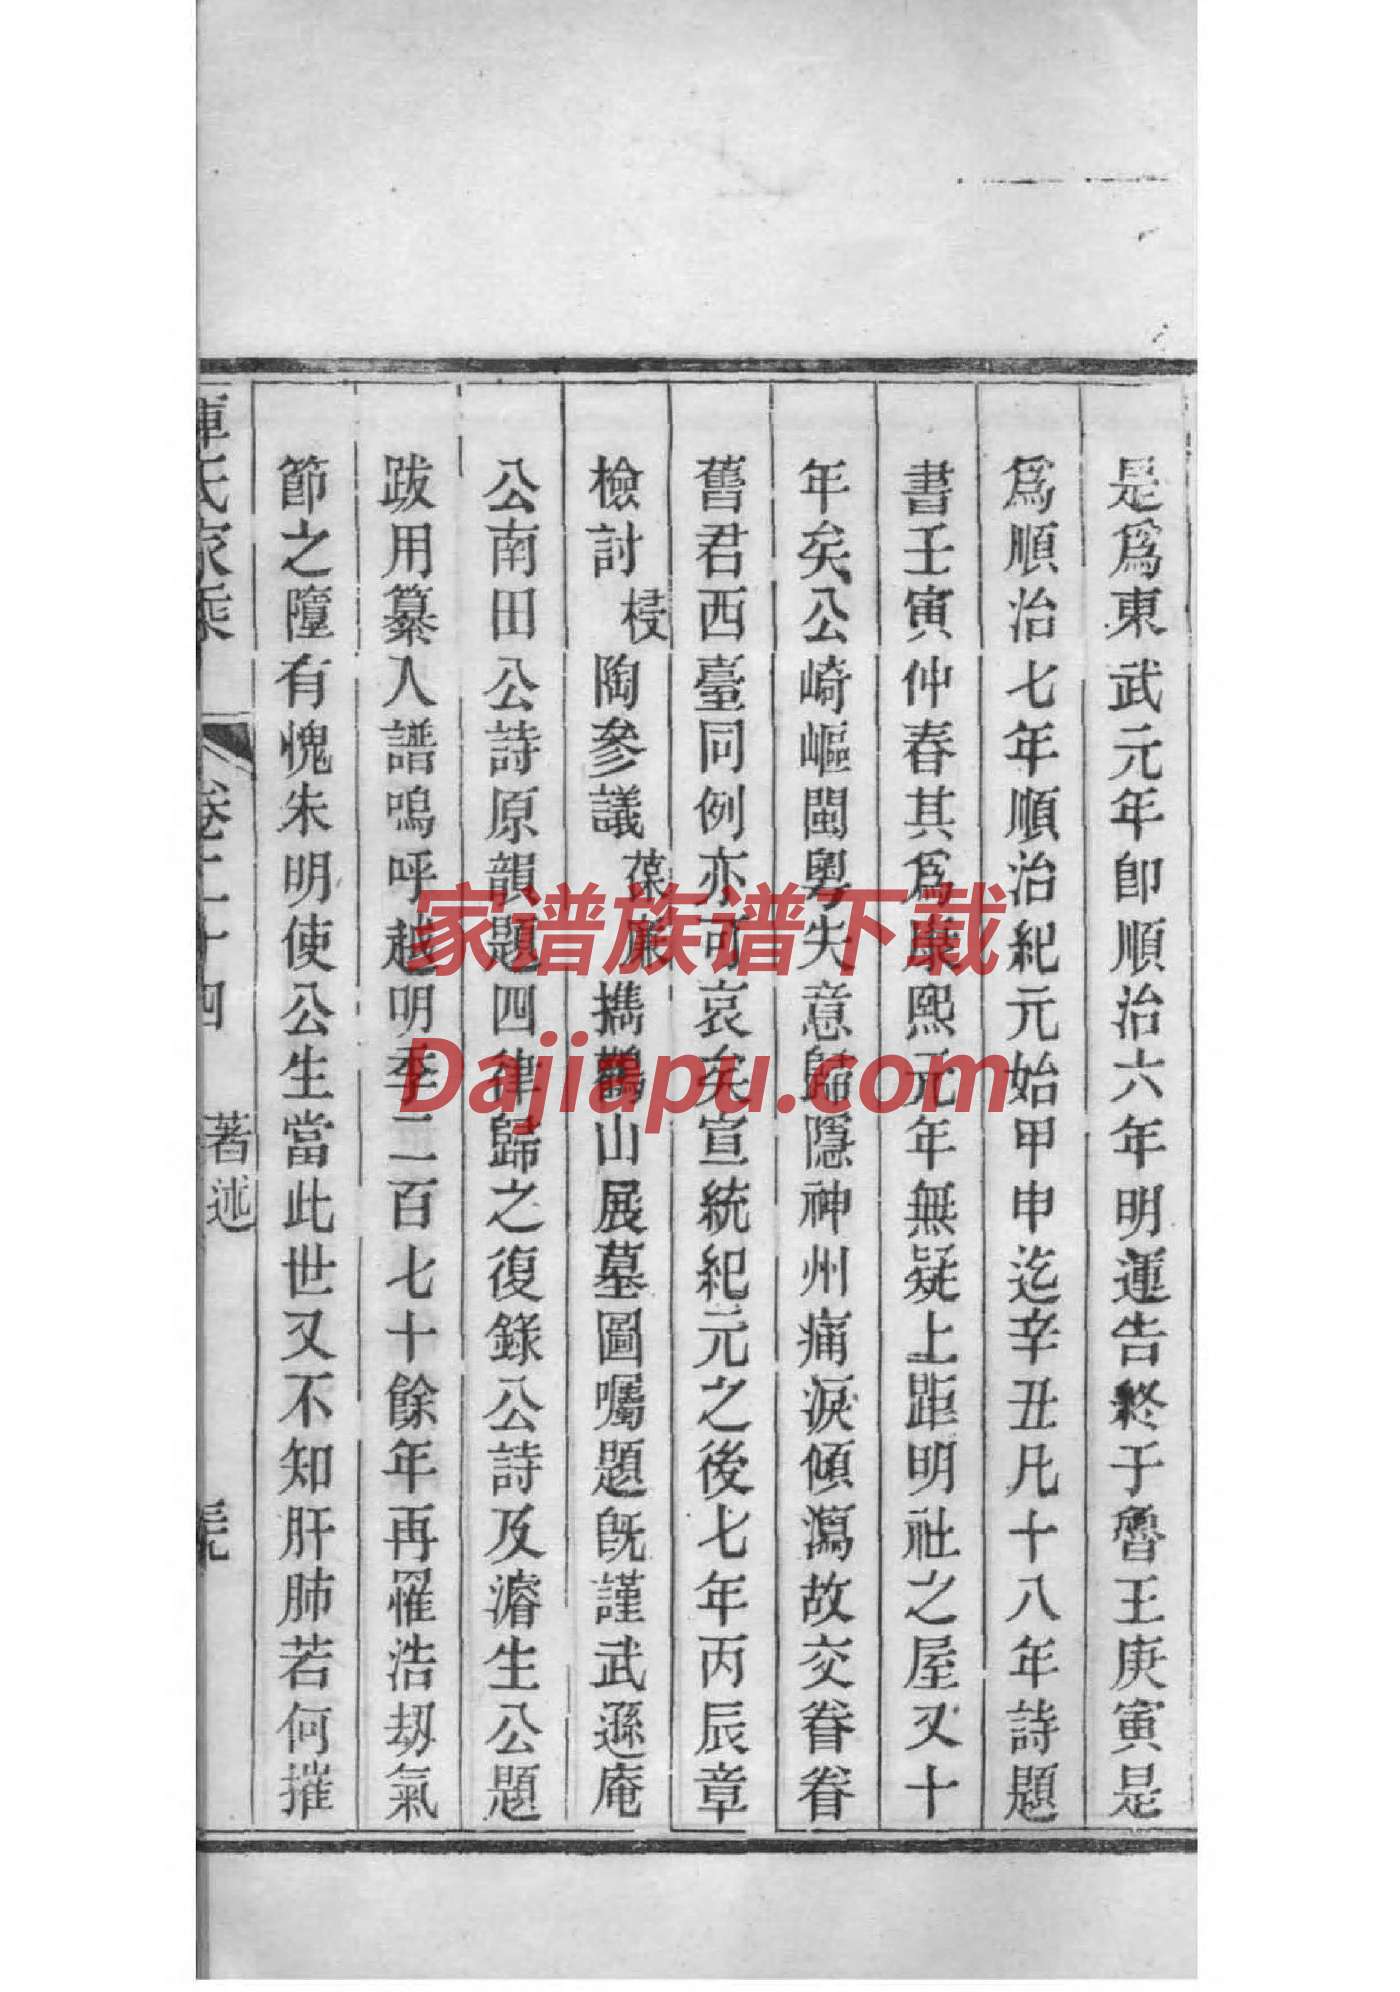 是爲東武元年卽順治六年明運告終于魯王庚寅是
爲順治七年順治紀元始甲申迄辛丑凡十八年詩題
書壬寅仲春其爲康熙元年無疑上距明社之屋又十
年矣公崎嶇閩粵失意歸隱神州痛淚傾瀉故交眷眷
舊君西臺同例亦可哀矣宣統紀元之後七年丙辰章
檢討梫陶參議葆廉攜鸛山展墓圖囑題旣謹武遜庵
公南田公詩原韻題四律歸之復錄公詩及濬生公題
跋用纂入譜嗚呼越明季二百七十餘年再罹浩劫氣
節之隳有愧朱明使公生當此世又不知肝肺若何摧
氏家乘 卷二十四 著述
家谱族谱下载
Dajiapu.com